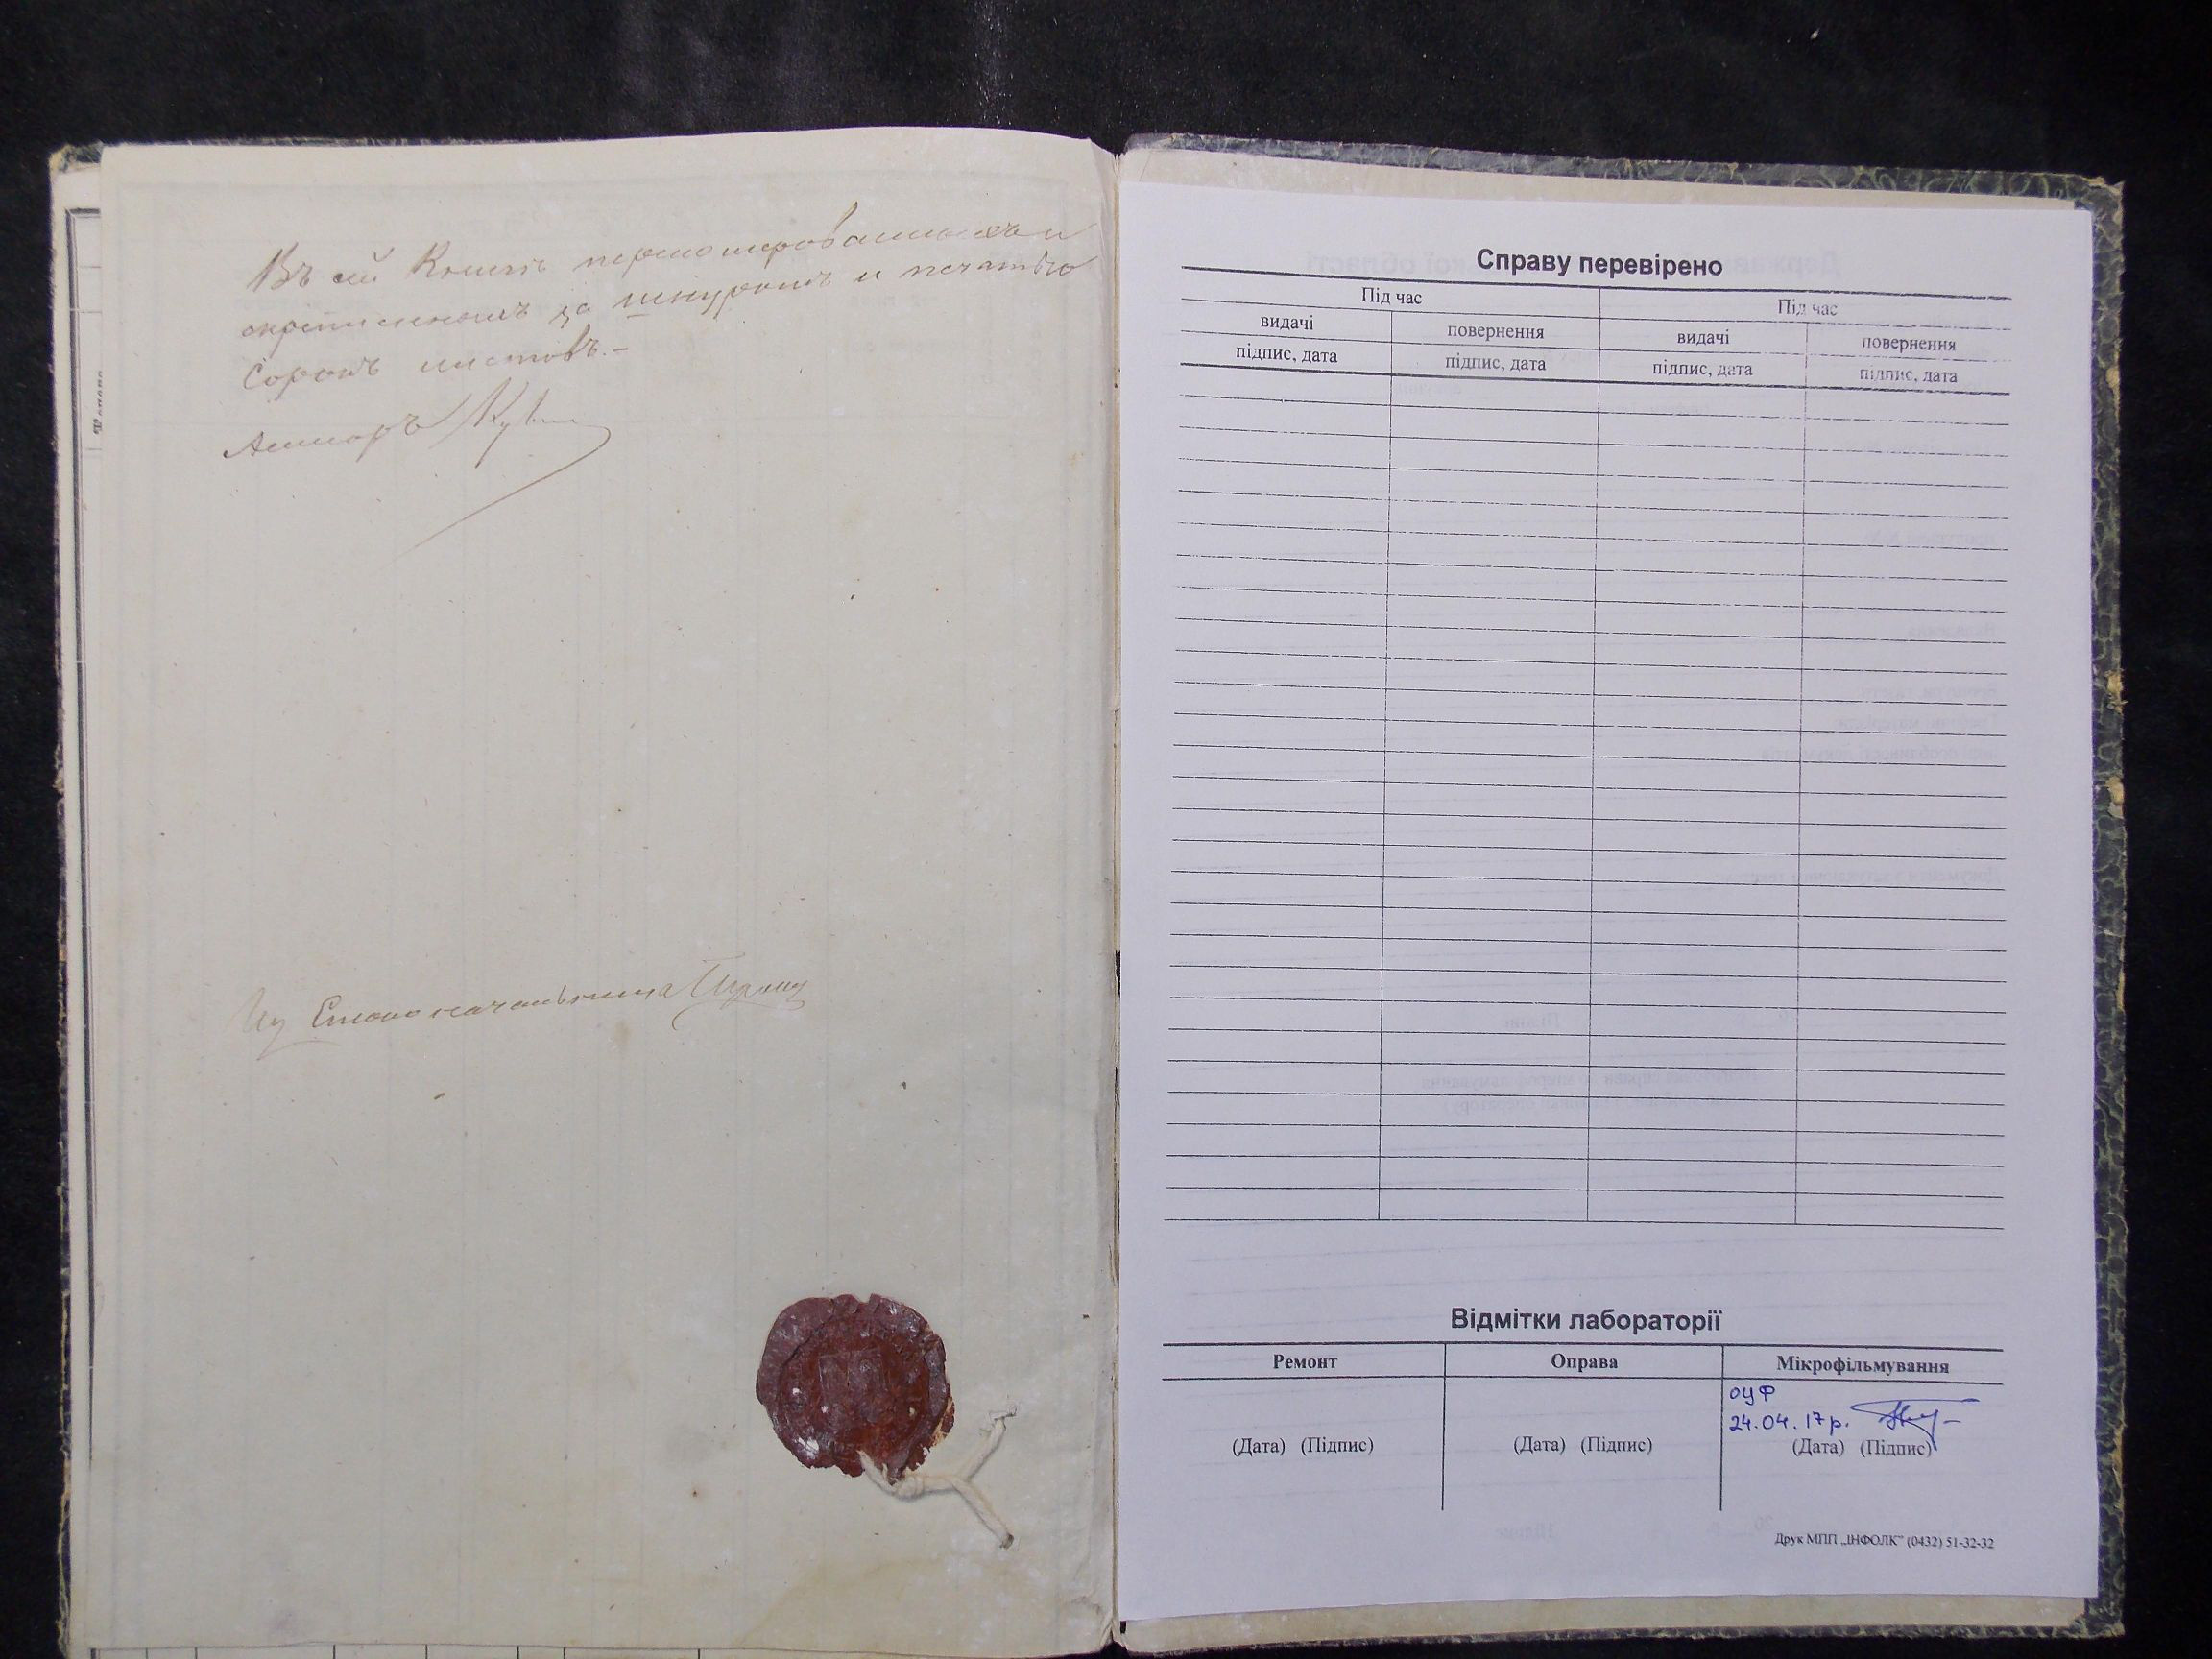 Въ сей Книгѣ перенумерованныхъ и
скрѣпленныхъ за шнуромъ и печатью
Сорокъ листовъ.–
Столоначальника
Справу перевірено
Під час
Під час
видачі
повернення
видачі
повернення
підпис, дата
підпис, дата
підпис, дата
підпис, дата
Відмітки лабораторії
Ремонт
Оправа
Мікрофільмування
ОУФ
24.04.17р.
(Дата) (Підпис)
(Дата) (Підпис)
(Дата) (Підпис)
Друк МПП „ІНФОЛК" (0432) 51-32-32